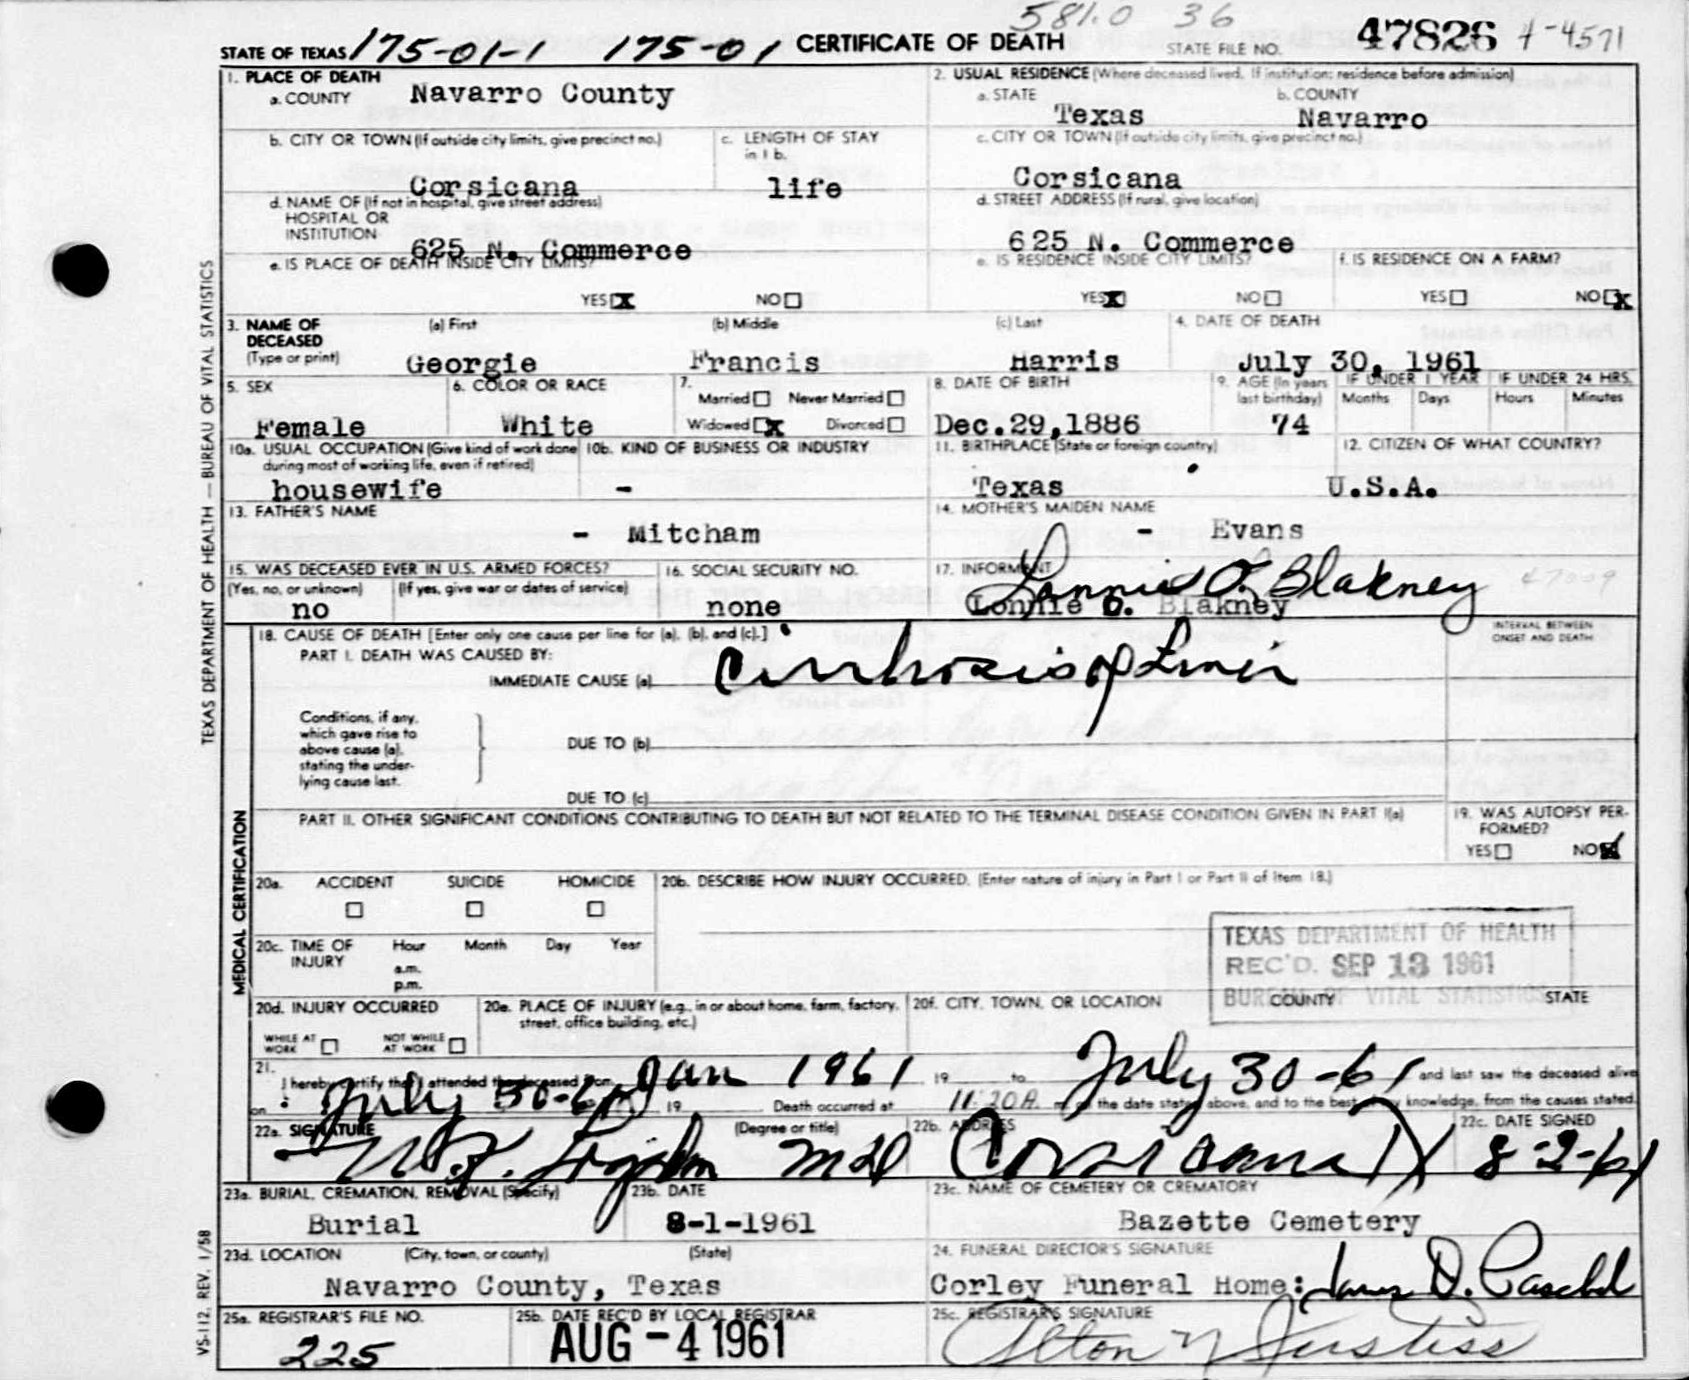 581.0 36
STATE OF TEXAS 175-01-1 175-01 CERTIFICATE OF DEATH STATE FILE NO. 47826 A-4571
1. PLACE OF DEATH
a. COUNTY Navarro County
2. USUAL RESIDENCE (Where deceased lived. If institution: residence before admission)
a. STATE Texas b. COUNTY Navarro
b. CITY OR TOWN (If outside city limits, give precinct no.) Corsicana
c. LENGTH OF STAY in 1 b. life
c. CITY OR TOWN (If outside city limits, give precinct no.) Corsicana
d. NAME OF (If not in hospital, give street address)
HOSPITAL OR
INSTITUTION 625 N. Commerce
d. STREET ADDRESS (If rural, give location)
625 N. Commerce
e. IS PLACE OF DEATH INSIDE CITY LIMITS?
YES X NO
e. IS RESIDENCE INSIDE CITY LIMITS?
YES X NO
f. IS RESIDENCE ON A FARM?
YES NO X
3. NAME OF DECEASED (Type or print)
(a) First (b) Middle (c) Last
Georgie Francis Harris
4. DATE OF DEATH
July 30, 1961
5. SEX
Female
6. COLOR OR RACE
White
7. Married Never Married
Widowed X Divorced
8. DATE OF BIRTH
Dec.29,1886
9. AGE (In years last birthday)
74
IF UNDER 1 YEAR
Months Days
IF UNDER 24 HRS.
Hours Minutes
10a. USUAL OCCUPATION (Give kind of work done during most of working life, even if retired)
housewife
10b. KIND OF BUSINESS OR INDUSTRY
-
11. BIRTHPLACE (State or foreign country)
Texas
12. CITIZEN OF WHAT COUNTRY?
U.S.A.
13. FATHER'S NAME
- Mitcham
14. MOTHER'S MAIDEN NAME
- Evans
15. WAS DECEASED EVER IN U.S. ARMED FORCES?
(Yes, no, or unknown) (If yes, give war or dates of service)
no
16. SOCIAL SECURITY NO.
none
17. INFORMANT
Lonnie O. Blakney
Lonnie O. Blakney
47009
18. CAUSE OF DEATH [Enter only one cause per line for (a), (b), and (c).]
INTERVAL BETWEEN ONSET AND DEATH
PART I. DEATH WAS CAUSED BY:
IMMEDIATE CAUSE (a) Cirrhosis of Liver
Conditions, if any,
which gave rise to
above cause (a),
stating the under-
lying cause last.
DUE TO (b)
DUE TO (c)
PART II. OTHER SIGNIFICANT CONDITIONS CONTRIBUTING TO DEATH BUT NOT RELATED TO THE TERMINAL DISEASE CONDITION GIVEN IN PART I(a)
19. WAS AUTOPSY PER-
FORMED?
YES NO
20a. ACCIDENT SUICIDE HOMICIDE
20b. DESCRIBE HOW INJURY OCCURRED. (Enter nature of injury in Part I or Part II of Item 18.)
20c. TIME OF INJURY Hour Month Day Year
a.m.
p.m.
TEXAS DEPARTMENT OF HEALTH
REC'D. SEP 13 1961
BUREAU OF VITAL STATISTICS
20d. INJURY OCCURRED
WHILE AT WORK NOT WHILE AT WORK
20e. PLACE OF INJURY (e.g., in or about home, farm, factory, street, office building, etc.)
20f. CITY, TOWN, OR LOCATION COUNTY STATE
21.
I hereby certify that I attended the deceased from Jan 1961 19 to July 30-61 and last saw the deceased alive
on July 30-61 19 . Death occurred at 11:20A. m on the date stated above, and to the best of my knowledge, from the causes stated.
22a. SIGNATURE (Degree or title) MD
22b. ADDRESS Corsicana Tx
22c. DATE SIGNED 8-2-61
23a. BURIAL, CREMATION, REMOVAL (Specify)
Burial
23b. DATE
8-1-1961
23c. NAME OF CEMETERY OR CREMATORY
Bazette Cemetery
23d. LOCATION (City, town, or county) (State)
Navarro County, Texas
24. FUNERAL DIRECTOR'S SIGNATURE
Corley Funeral Home:
25a. REGISTRAR'S FILE NO.
225
25b. DATE REC'D BY LOCAL REGISTRAR
AUG - 4 1961
25c. REGISTRAR'S SIGNATURE
Alton N Justiss
TEXAS DEPARTMENT OF HEALTH — BUREAU OF VITAL STATISTICS
MEDICAL CERTIFICATION
VS-112, REV. 1/58